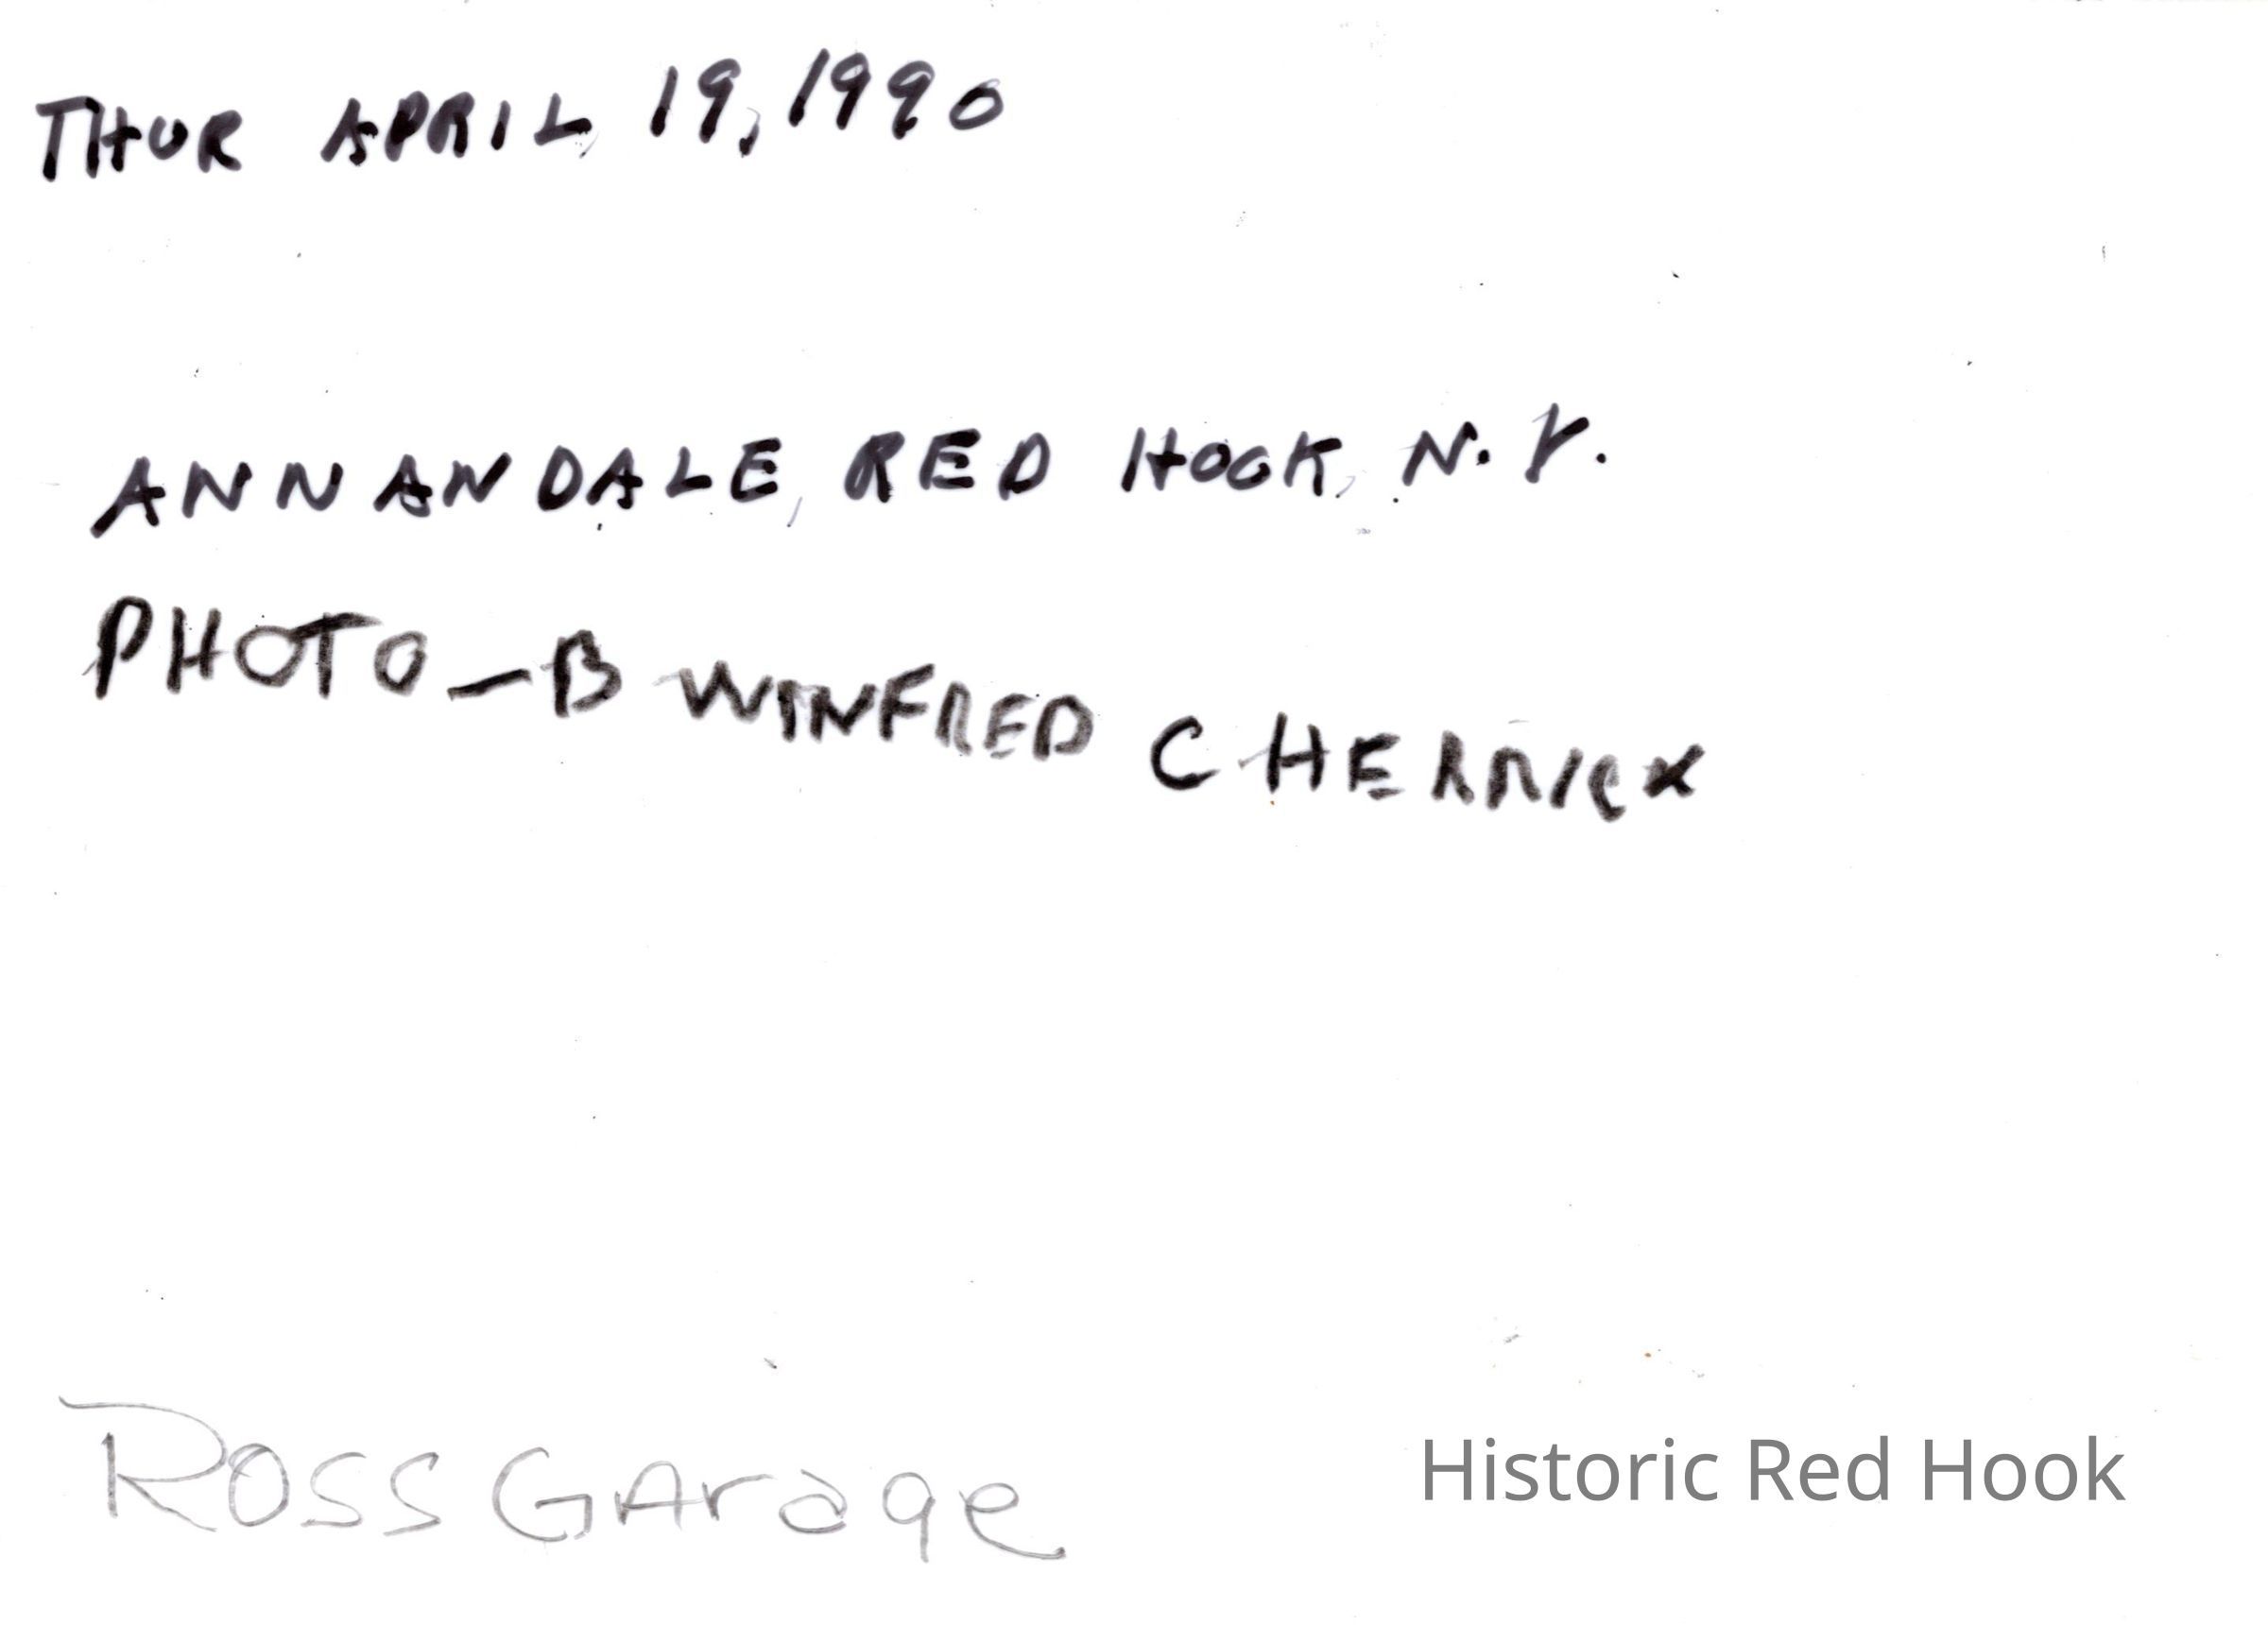 THUR APRIL 19, 1990
ANNANDALE, RED HOOK, N.Y.
PHOTO - B WINFRED CHERRICK
ROSS GArage
Historic Red Hook